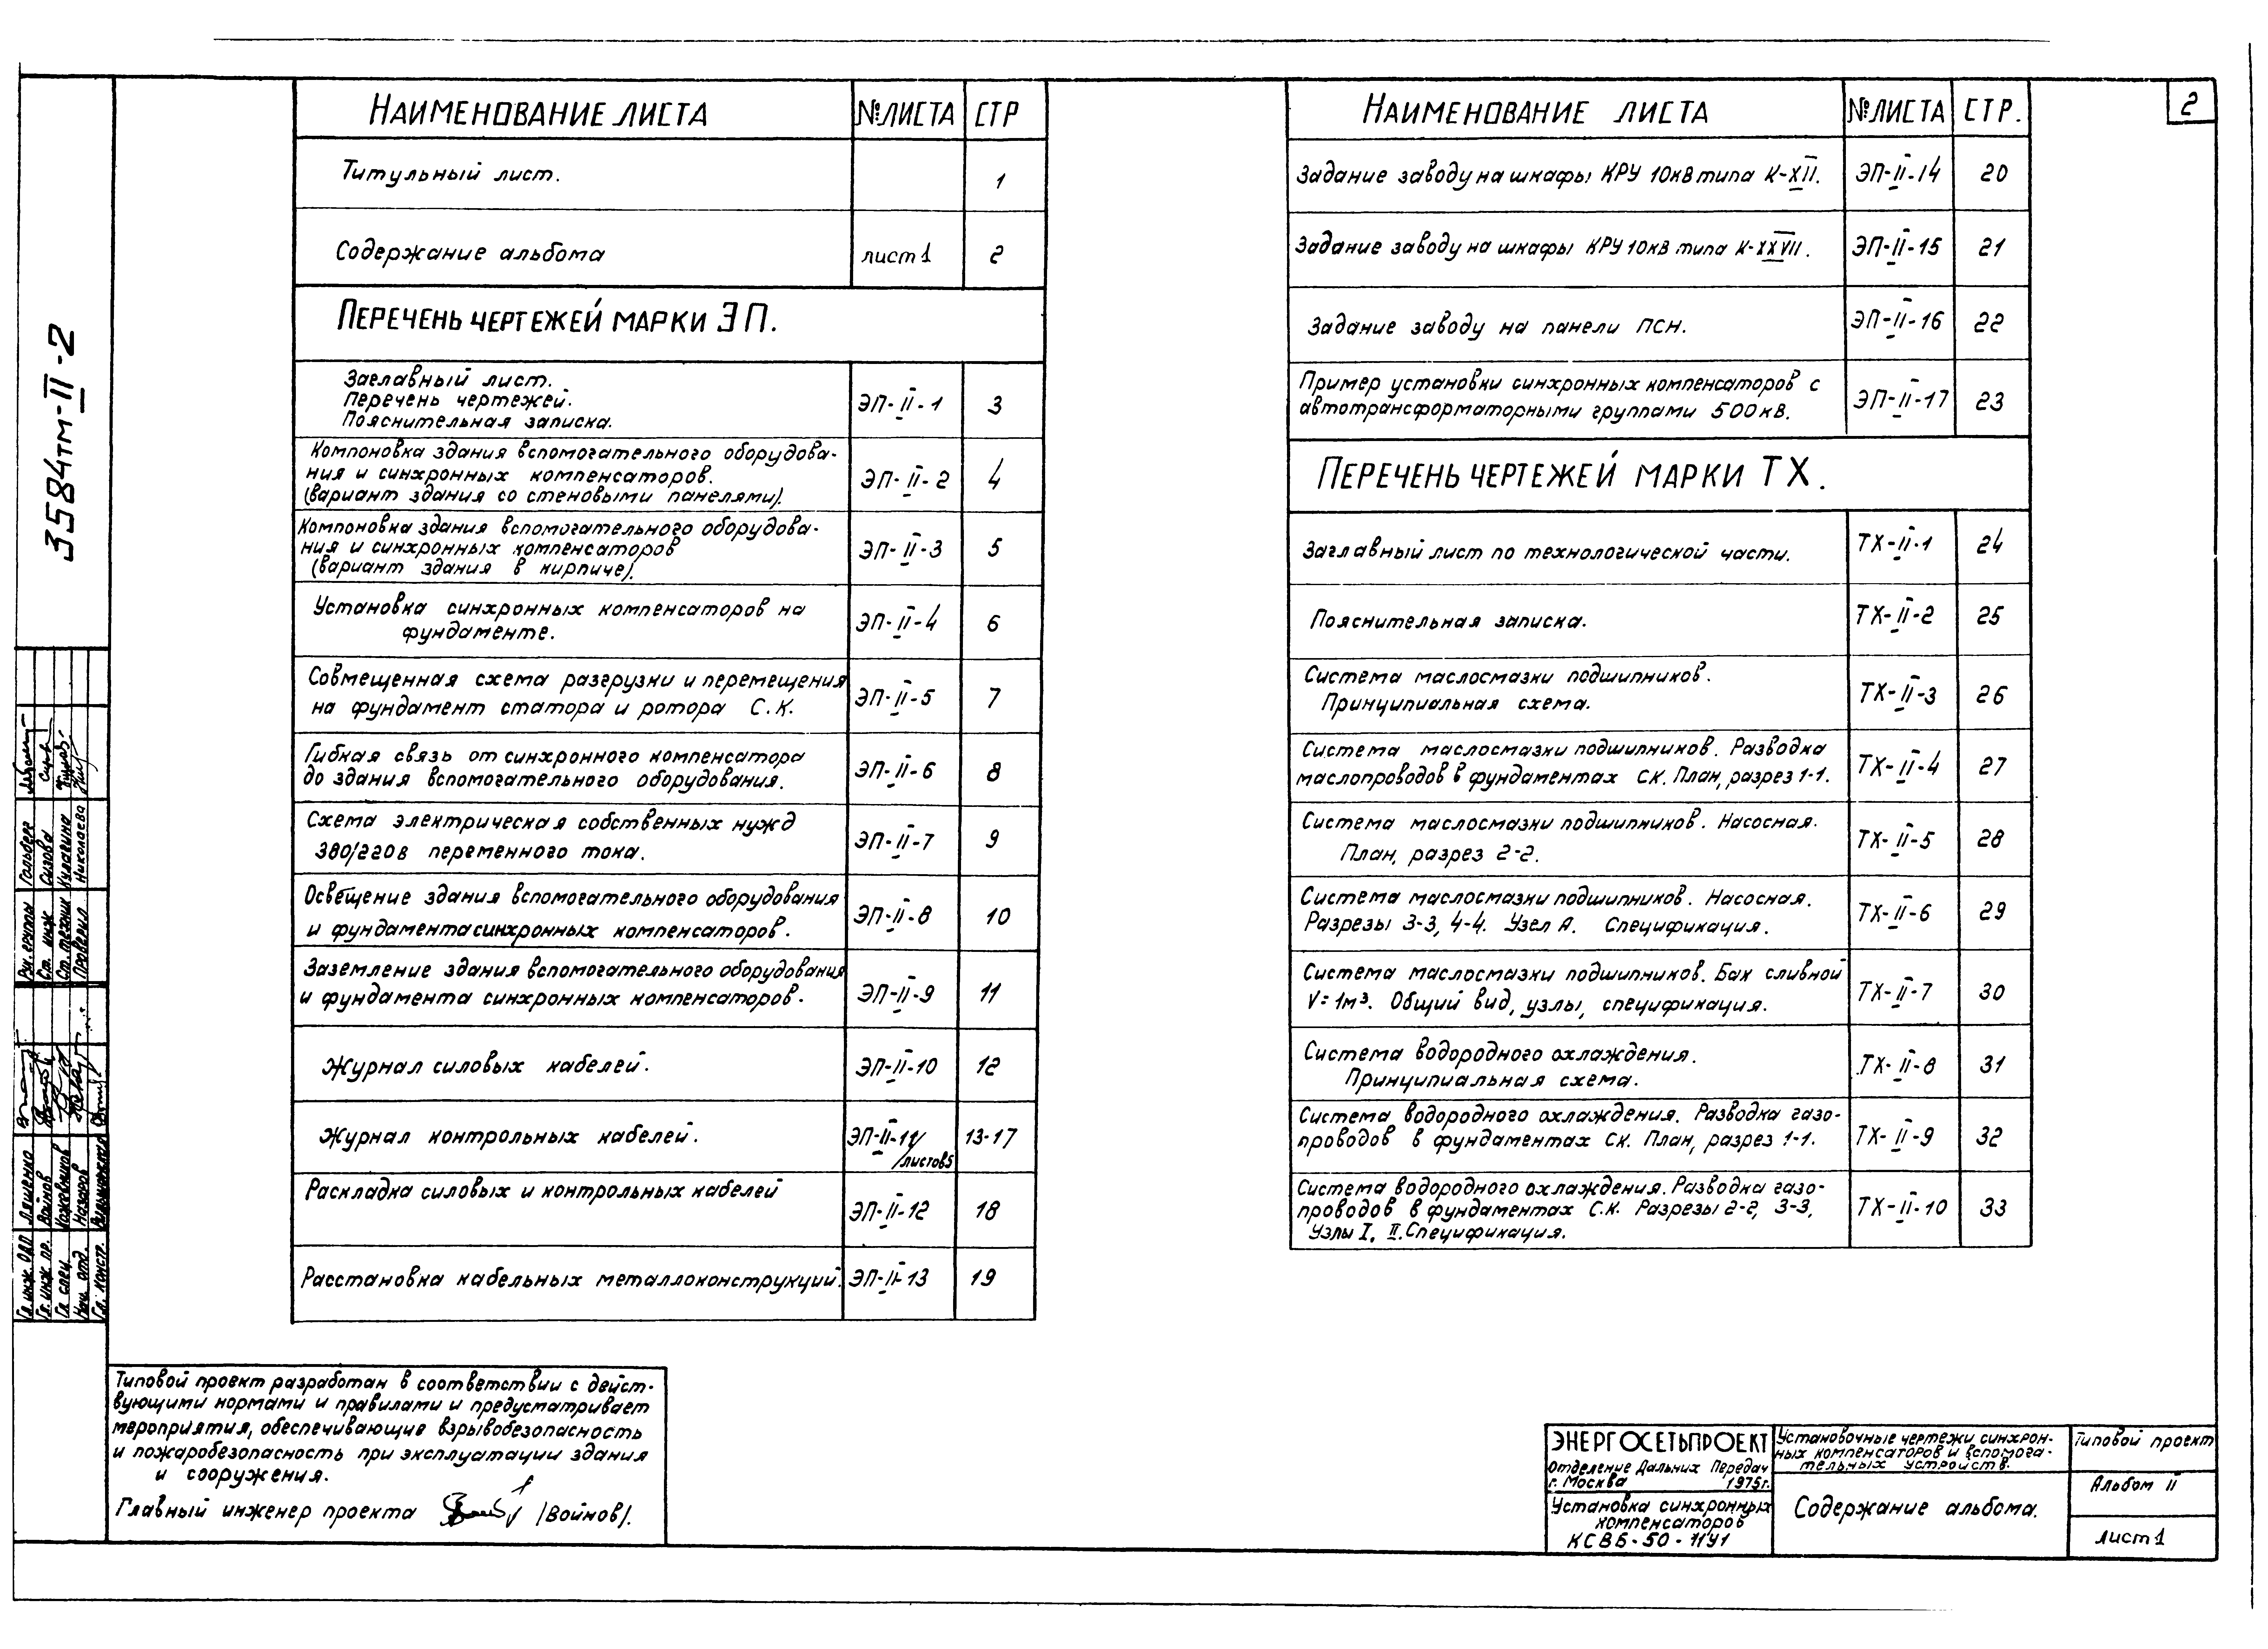 2
НАИМЕНОВАНИЕ ЛИСТА №ЛИСТА СТР
Титульный лист. 1
Содержание альбома лист 1 2
ПЕРЕЧЕНЬ ЧЕРТЕЖЕЙ МАРКИ ЭП.
Заглавный лист.
Перечень чертежей. ЭП-II-1 3
Пояснительная записка.
Компоновка здания вспомогательного оборудова-
ния и синхронных компенсаторов. ЭП-II-2 4
(вариант здания со стеновыми панелями).
Компоновка здания вспомогательного оборудова-
ния и синхронных компенсаторов ЭП-II-3 5
(вариант здания в кирпиче).
Установка синхронных компенсаторов на ЭП-II-4 6
фундаменте.
Совмещенная схема разгрузки и перемещения ЭП-II-5 7
на фундамент статора и ротора С.К.
Гибкая связь от синхронного компенсатора ЭП-II-6 8
до здания вспомогательного оборудования.
Схема электрическая собственных нужд ЭП-II-7 9
380/220в переменного тока.
Освещение здания вспомогательного оборудования ЭП-II-8 10
и фундамента синхронных компенсаторов.
Заземление здания вспомогательного оборудования ЭП-II-9 11
и фундамента синхронных компенсаторов.
Журнал силовых кабелей. ЭП-II-10 12
Журнал контрольных кабелей. ЭП-II-11/ 13-17
/листов5
Раскладка силовых и контрольных кабелей ЭП-II-12 18
Расстановка кабельных металлоконструкций. ЭП-II-13 19
НАИМЕНОВАНИЕ ЛИСТА №ЛИСТА СТР.
Задание заводу на шкафы КРУ 10кв типа К-XII. ЭП-II-14 20
Задание заводу на шкафы КРУ 10кв типа К-XXVII. ЭП-II-15 21
Задание заводу на панели ПСН. ЭП-II-16 22
Пример установки синхронных компенсаторов с ЭП-II-17 23
автотрансформаторными группами 500кв.
ПЕРЕЧЕНЬ ЧЕРТЕЖЕЙ МАРКИ ТХ.
Заглавный лист по технологической части. ТХ-II-1 24
Пояснительная записка. ТХ-II-2 25
Система маслосмазки подшипников. ТХ-II-3 26
Принципиальная схема.
Система маслосмазки подшипников. Разводка ТХ-II-4 27
маслопроводов в фундаментах СК. План, разрез 1-1.
Система маслосмазки подшипников. Насосная. ТХ-II-5 28
План, разрез 2-2.
Система маслосмазки подшипников. Насосная. ТХ-II-6 29
Разрезы 3-3, 4-4. Узел А. Спецификация.
Система маслосмазки подшипников. Бак сливной ТХ-II-7 30
V=1м³. Общий вид, узлы, спецификация.
Система водородного охлаждения. ТХ-II-8 31
Принципиальная схема.
Система водородного охлаждения. Разводка газо-
проводов в фундаментах СК. План, разрез 1-1. ТХ-II-9 32
Система водородного охлаждения. Разводка газо-
проводов в фундаментах С.К. Разрезы 2-2, 3-3, ТХ-II-10 33
Узлы I, II. Спецификация.
3584тм-II-2
Рук. группы Гольберг
Ст. инж Сизова
Ст. техник Кулагина
Проверил Николаева
Гл. инж. ОДП Ляшенко
Гл. инж. пр. Войнов
Гл. спец. Кожевников
Нач. отд. Назаров
Гл. констр.
Типовой проект разработан в соответствии с дейст-
вующими нормами и правилами и предусматривает
мероприятия, обеспечивающие взрывобезопасность
и пожаробезопасность при эксплуатации здания
и сооружения.
Главный инженер проекта /Войнов/.
ЭНЕРГОСЕТЬПРОЕКТ
Отделение Дальних Передач
г. Москва 1975г.
Установка синхронных
компенсаторов
КСВБ-50-11У1
Установочные чертежи синхрон-
ных компенсаторов и вспомога-
тельных устройств.
Содержание альбома.
Типовой проект
Альбом II
Лист 1